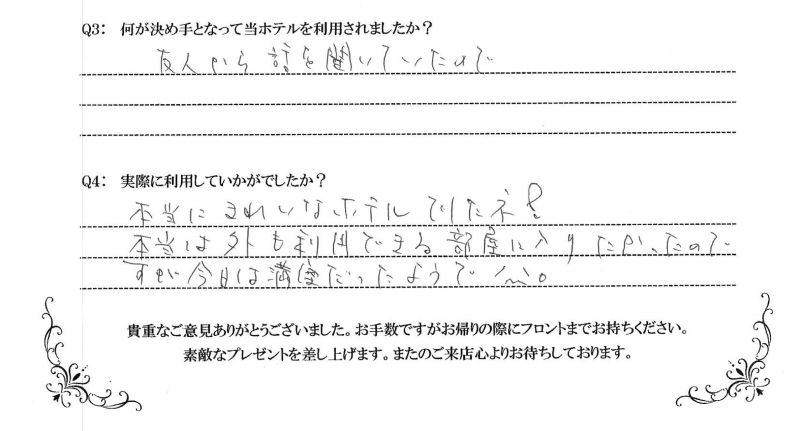 Q3: 何が決め手となって当ホテルを利用されましたか？
友人から話を聞いていたので
Q4: 実際に利用していかがでしたか？
本当にきれいなホテルでしたネ!
本当は外も利用できる部屋に入りたかったので
すが今日は満室だったようで
貴重なご意見ありがとうございました。お手数ですがお帰りの際にフロントまでお持ちください。
素敵なプレゼントを差し上げます。またのご来店心よりお待ちしております。